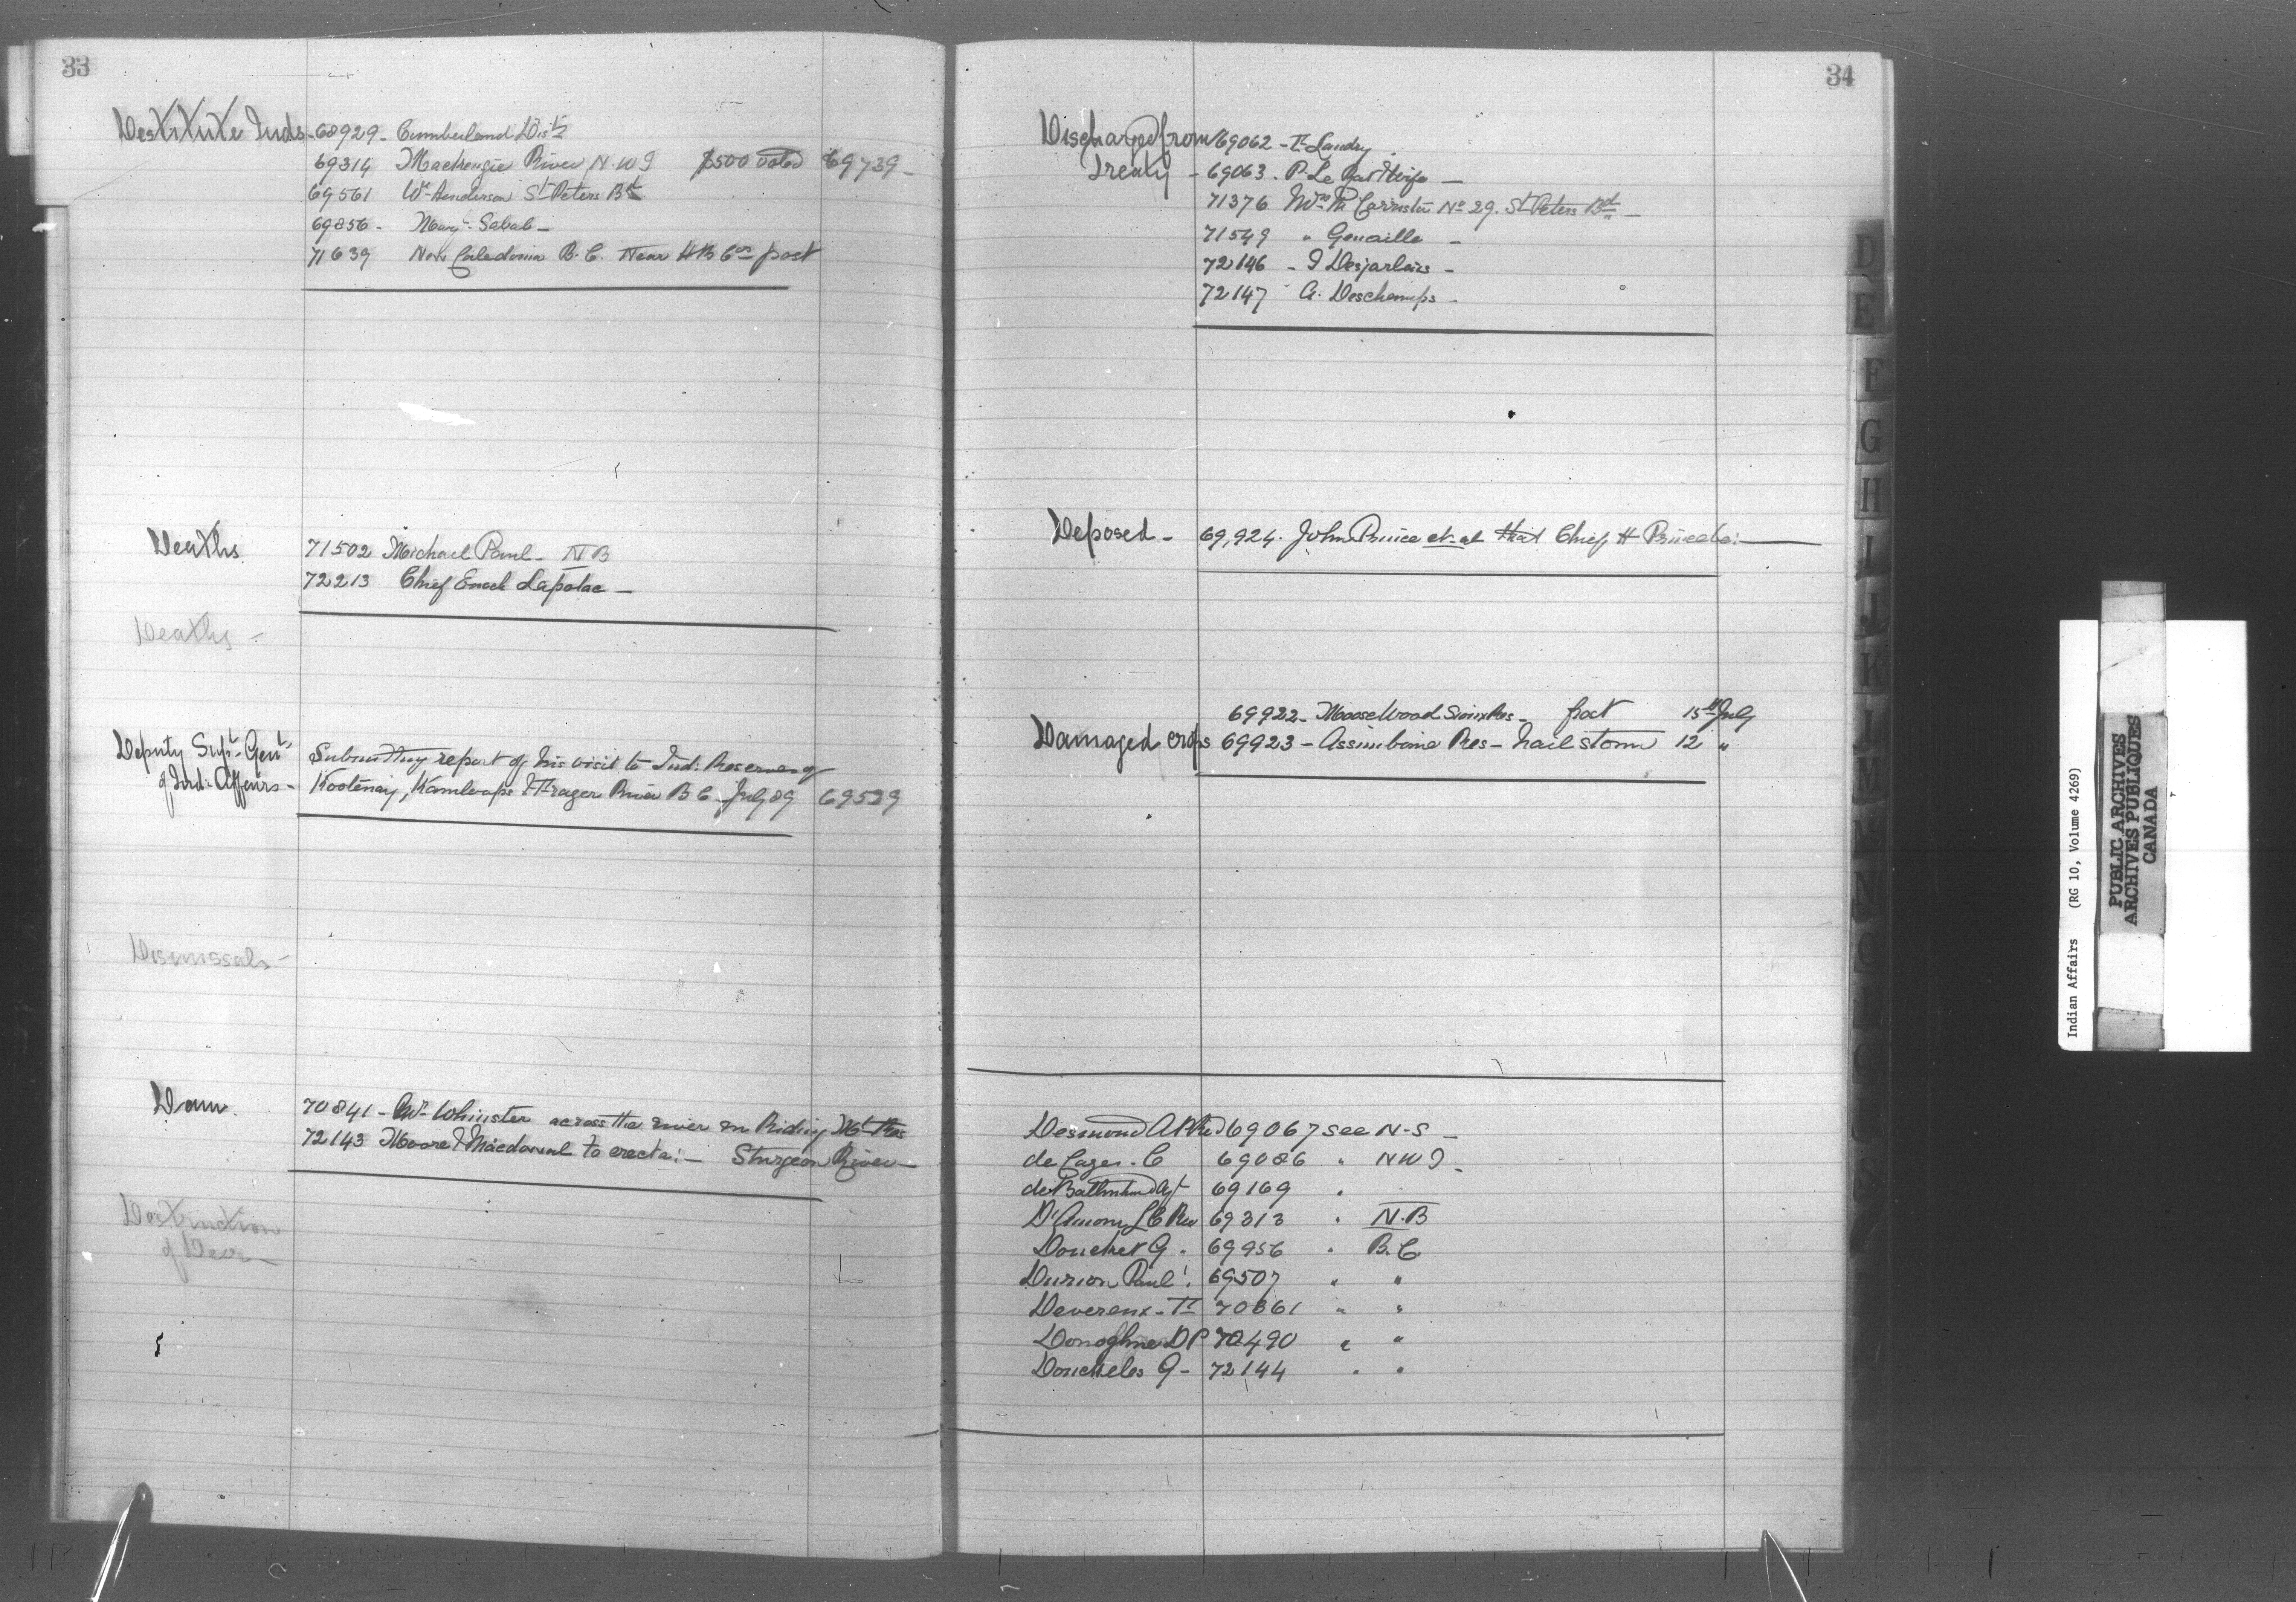 33
Destitute Inds - 68929 - Cumberland Dist
69314 Mackenzie River N.W.T $500 voted 69739 -
69561 Wm Henderson St Peters Bd
69856 - Mary Sabab -
71639 New Caledonia B.C. Near H B Cos post
Deaths 71502 Michael Paul - N B
72213 Chief Enoch Lapolac -
Deaths -
Deputy Supt Genl Submitting report of his visit to Ind. Reserves of
of Ind. Affairs - Kootenay, Kamloops & Frazer River B C - July 89 69529
Dismissals -
Dam. 70841 - across the river on Riding Mt Res
72143 Moore & Macdowal to erect a: - Sturgeon River -
Destruction
of Deer -
34
Discharged from 69062 - F Landry.
Treaty - 69063. P. Le Rat & Wife -
71376 Mrs No 29. St Peters Bd -
71549 " Genaille -
72146 - J Desjarlais -
72147 A. Deschamps -
Deposed - 69,924. John Prince et al that Chief H Prince be: -
69922 - Moose Wood Sioux Res - frost 15th July
Damaged crops 69923 - Assiniboine Res - hail storm 12 "
Desmond 69067 see N-S -
de Cazes. C 69086 " N W T -
69169 "
D'Amour L C Rev 69313 " N.B
Douchet G. 69956 " B.C.
Durion Paul. 69507 " "
Devereux - F 70861 " "
Donoghue D P 70490 " "
Doucheles G - 72144 " "
D
E
F
G
H
I
J
K
L
M
N
O
P
Q
R
S
Indian Affairs (RG 10, Volume 4269)
PUBLIC ARCHIVES
ARCHIVES PUBLIQUES
CANADA